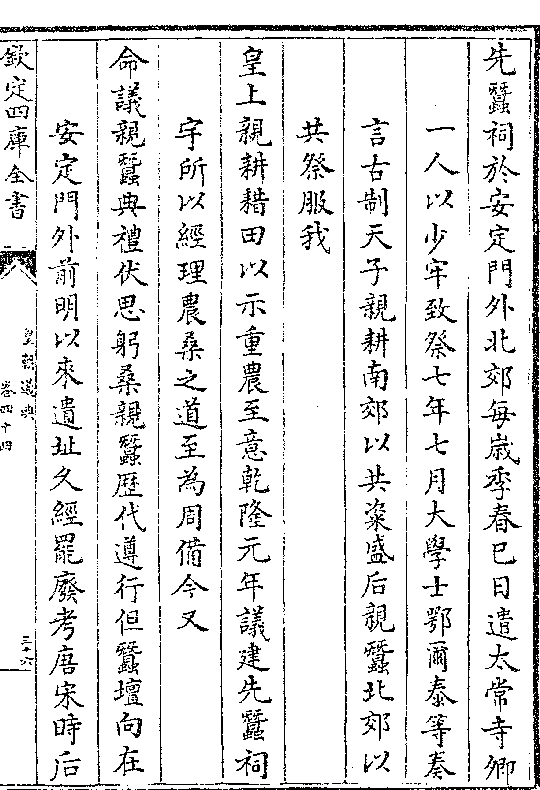 先蠶祠於安定門外北郊每歲季春巳日遣太常寺卿
一人以少牢致祭七年七月大學士鄂爾泰等奏
言古制天子親耕南郊以共粢盛后親蠶北郊以
共祭服我
皇上親耕耤田以示重農至意乾隆元年議建先蠶祠
宇所以經理農桑之道至為周備今又
命議親蠶典禮伏思躬桑親蠶歴代遵行但蠶壇向在
安定門外前明以來遺址久經罷廢考唐宋時后
欽定四庫全書
皇朝通典
卷四十四
三十六